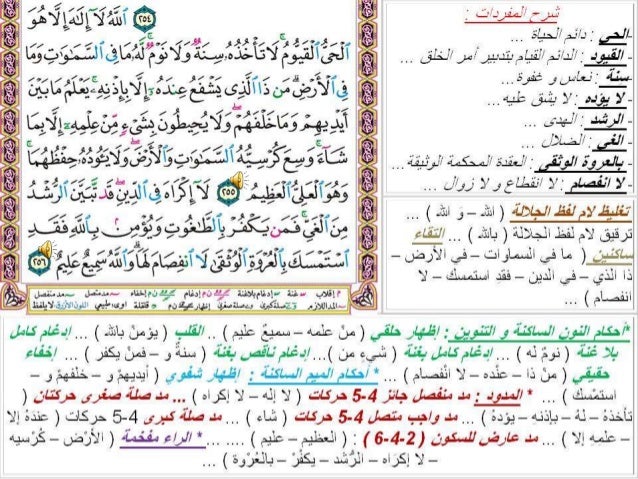 شرح المفردات :
-الحي : دائم الحياة ...
- القيوم : الدائم القيام بتدبير أمر الخلق ...
- سنة : نعاس و غفوة...
- لا يؤده : لا يشق عليه...
- الرشد : الهدى ...
- الغي : الضلال ...
- بالعروة الوثقى : العقدة المحكمة الوثيقة...
- لا انفصام : لا انقطاع و لا زوال ...
تغليظ لام لفظ الجلالة ( الله – و الله ) ...
ترقيق لام لفظ الجلالة ( بالله ) ... التقاء
ساكنين ( ما في السماوات – في الأرض –
ذا الذي – في الدين – فقد استمسك – لا
انفصام ) ...
٢٥٤ ٱللَّهُ لَآ إِلَٰهَ إِلَّا هُوَ
ٱلْحَىُّ ٱلْقَيُّومُ لَا تَأْخُذُهُۥ سِنَةٌ وَلَا نَوْمٌ لَّهُۥ مَا فِى ٱلسَّمَٰوَٰتِ وَمَا
فِى ٱلْأَرْضِ مَن ذَا ٱلَّذِى يَشْفَعُ عِندَهُۥٓ إِلَّا بِإِذْنِهِۦ يَعْلَمُ مَا بَيْنَ
أَيْدِيهِمْ وَمَا خَلْفَهُمْ وَلَا يُحِيطُونَ بِشَىْءٍ مِّنْ عِلْمِهِۦٓ إِلَّا بِمَا
شَآءَ وَسِعَ كُرْسِيُّهُ ٱلسَّمَٰوَٰتِ وَٱلْأَرْضَ وَلَا يَـُٔودُهُۥ حِفْظُهُمَا
وَهُوَ ٱلْعَلِىُّ ٱلْعَظِيمُ ٢٥٥ لَآ إِكْرَاهَ فِى ٱلدِّينِ قَد تَّبَيَّنَ ٱلرُّشْدُ
مِنَ ٱلْغَىِّ فَمَن يَكْفُرْ بِٱلطَّٰغُوتِ وَيُؤْمِنۢ بِٱللَّهِ فَقَدِ
ٱسْتَمْسَكَ بِٱلْعُرْوَةِ ٱلْوُثْقَىٰ لَا ٱنفِصَامَ لَهَا وَٱللَّهُ سَمِيعٌ عَلِيمٌ ٢٥٦
*أحكام النون الساكنة و التنوين : إظهار حلقي ( منْ علمه – سميعٌ عليم ) ... القلب ( يؤمنْ بالله ) ... إدغام كامل
بلا غنة ( نومٌ له ) ... إدغام كامل بغنة ( شيءٍ من )... إدغام ناقص بغنة ( سنةٌ و – فمنْ يكفر ) ... إخفاء
حقيقي ( منْ ذا – عنْده – لا انْفصام ) ... * أحكام الميم الساكنة : إظهار شفوي ( أيديهمْ و – خلفهمْ و –
استمْسك ) ... * المدود : مد منفصل جائز 4-5 حركات ( لا إله – لا إكراه ) ... مد صلة صغرى حركتان (
تأخذهُ – لهُ – بإذنهِ – يؤدهُ ) ... مد واجب متصل 4-5 حركات ( شاء ) ... مد صلة كبرى 4-5 حركات ( عندهُ إلا
– علمهِ إلا ) ... مد عارض للسكون ( 2-4-6 ) : ( العظيم – عليم ) .... ... * الراء مفخمة ( الأرْض – كُرْسيه
– لا إكرَاه – الرُّشد – يكفُرْ – بالعُرْوة ) ...